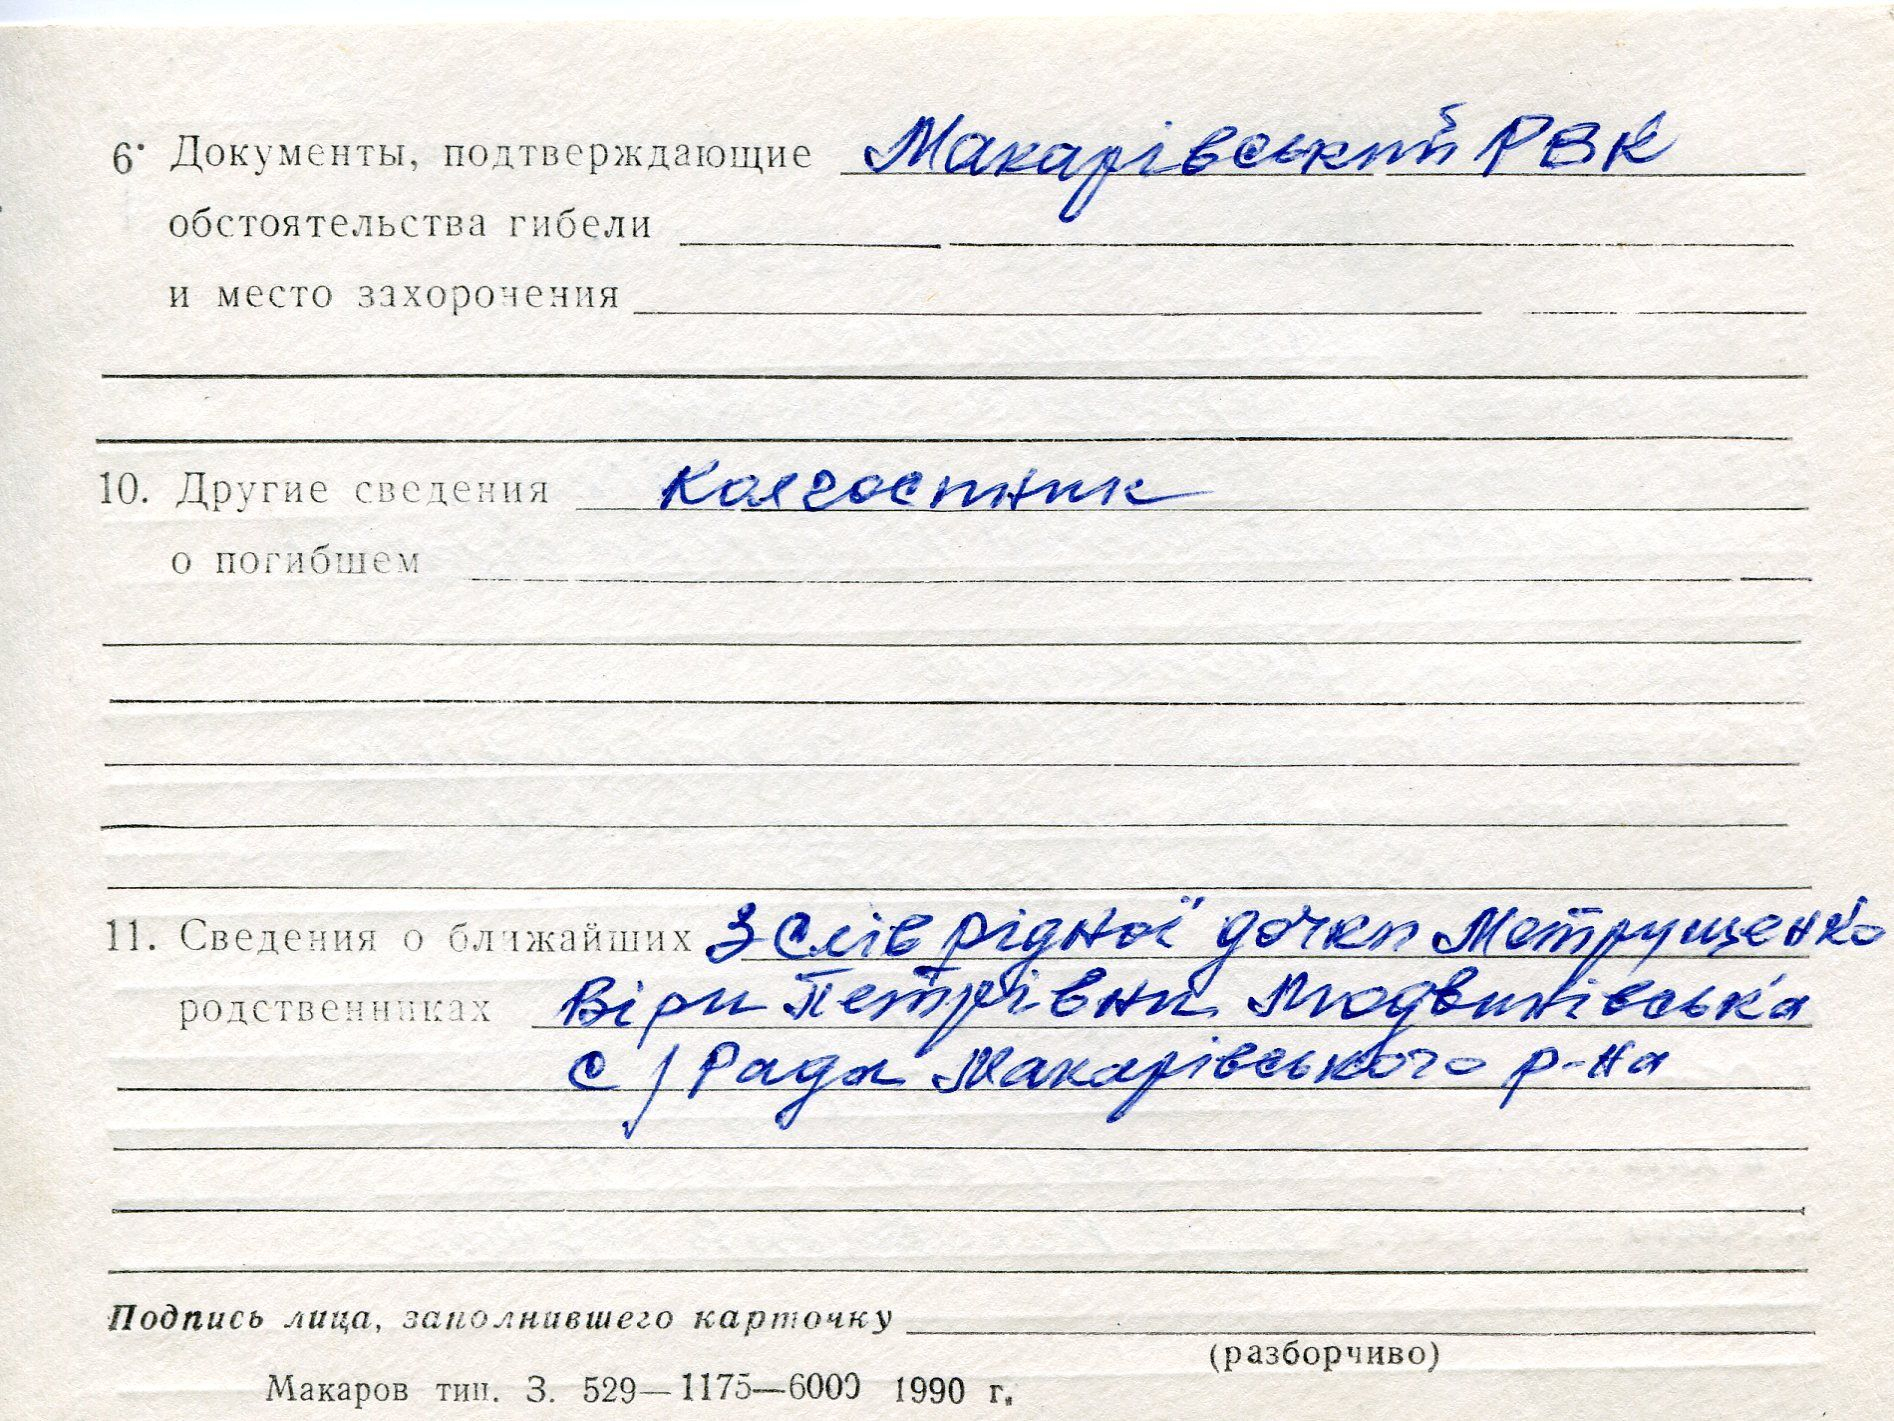 6. Документы, подтверждающие Макарівський РВК
обстоятельства гибели
и место захоронения
10. Другие сведения Колгоспник
о погибшем
11. Сведения о ближайших З слів рідної дочки Метрущенко
родственниках Віри Петрівни Людвинівська
с/Рада Макарівського р-на
Подпись лица, заполнившего карточку
(разборчиво)
Макаров тип. З. 529—1175—6000 1990 г.